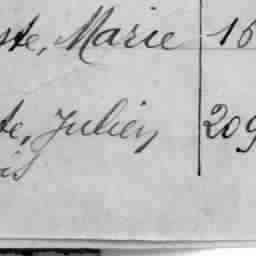 ste, Marie 16
te, Julien 209
is